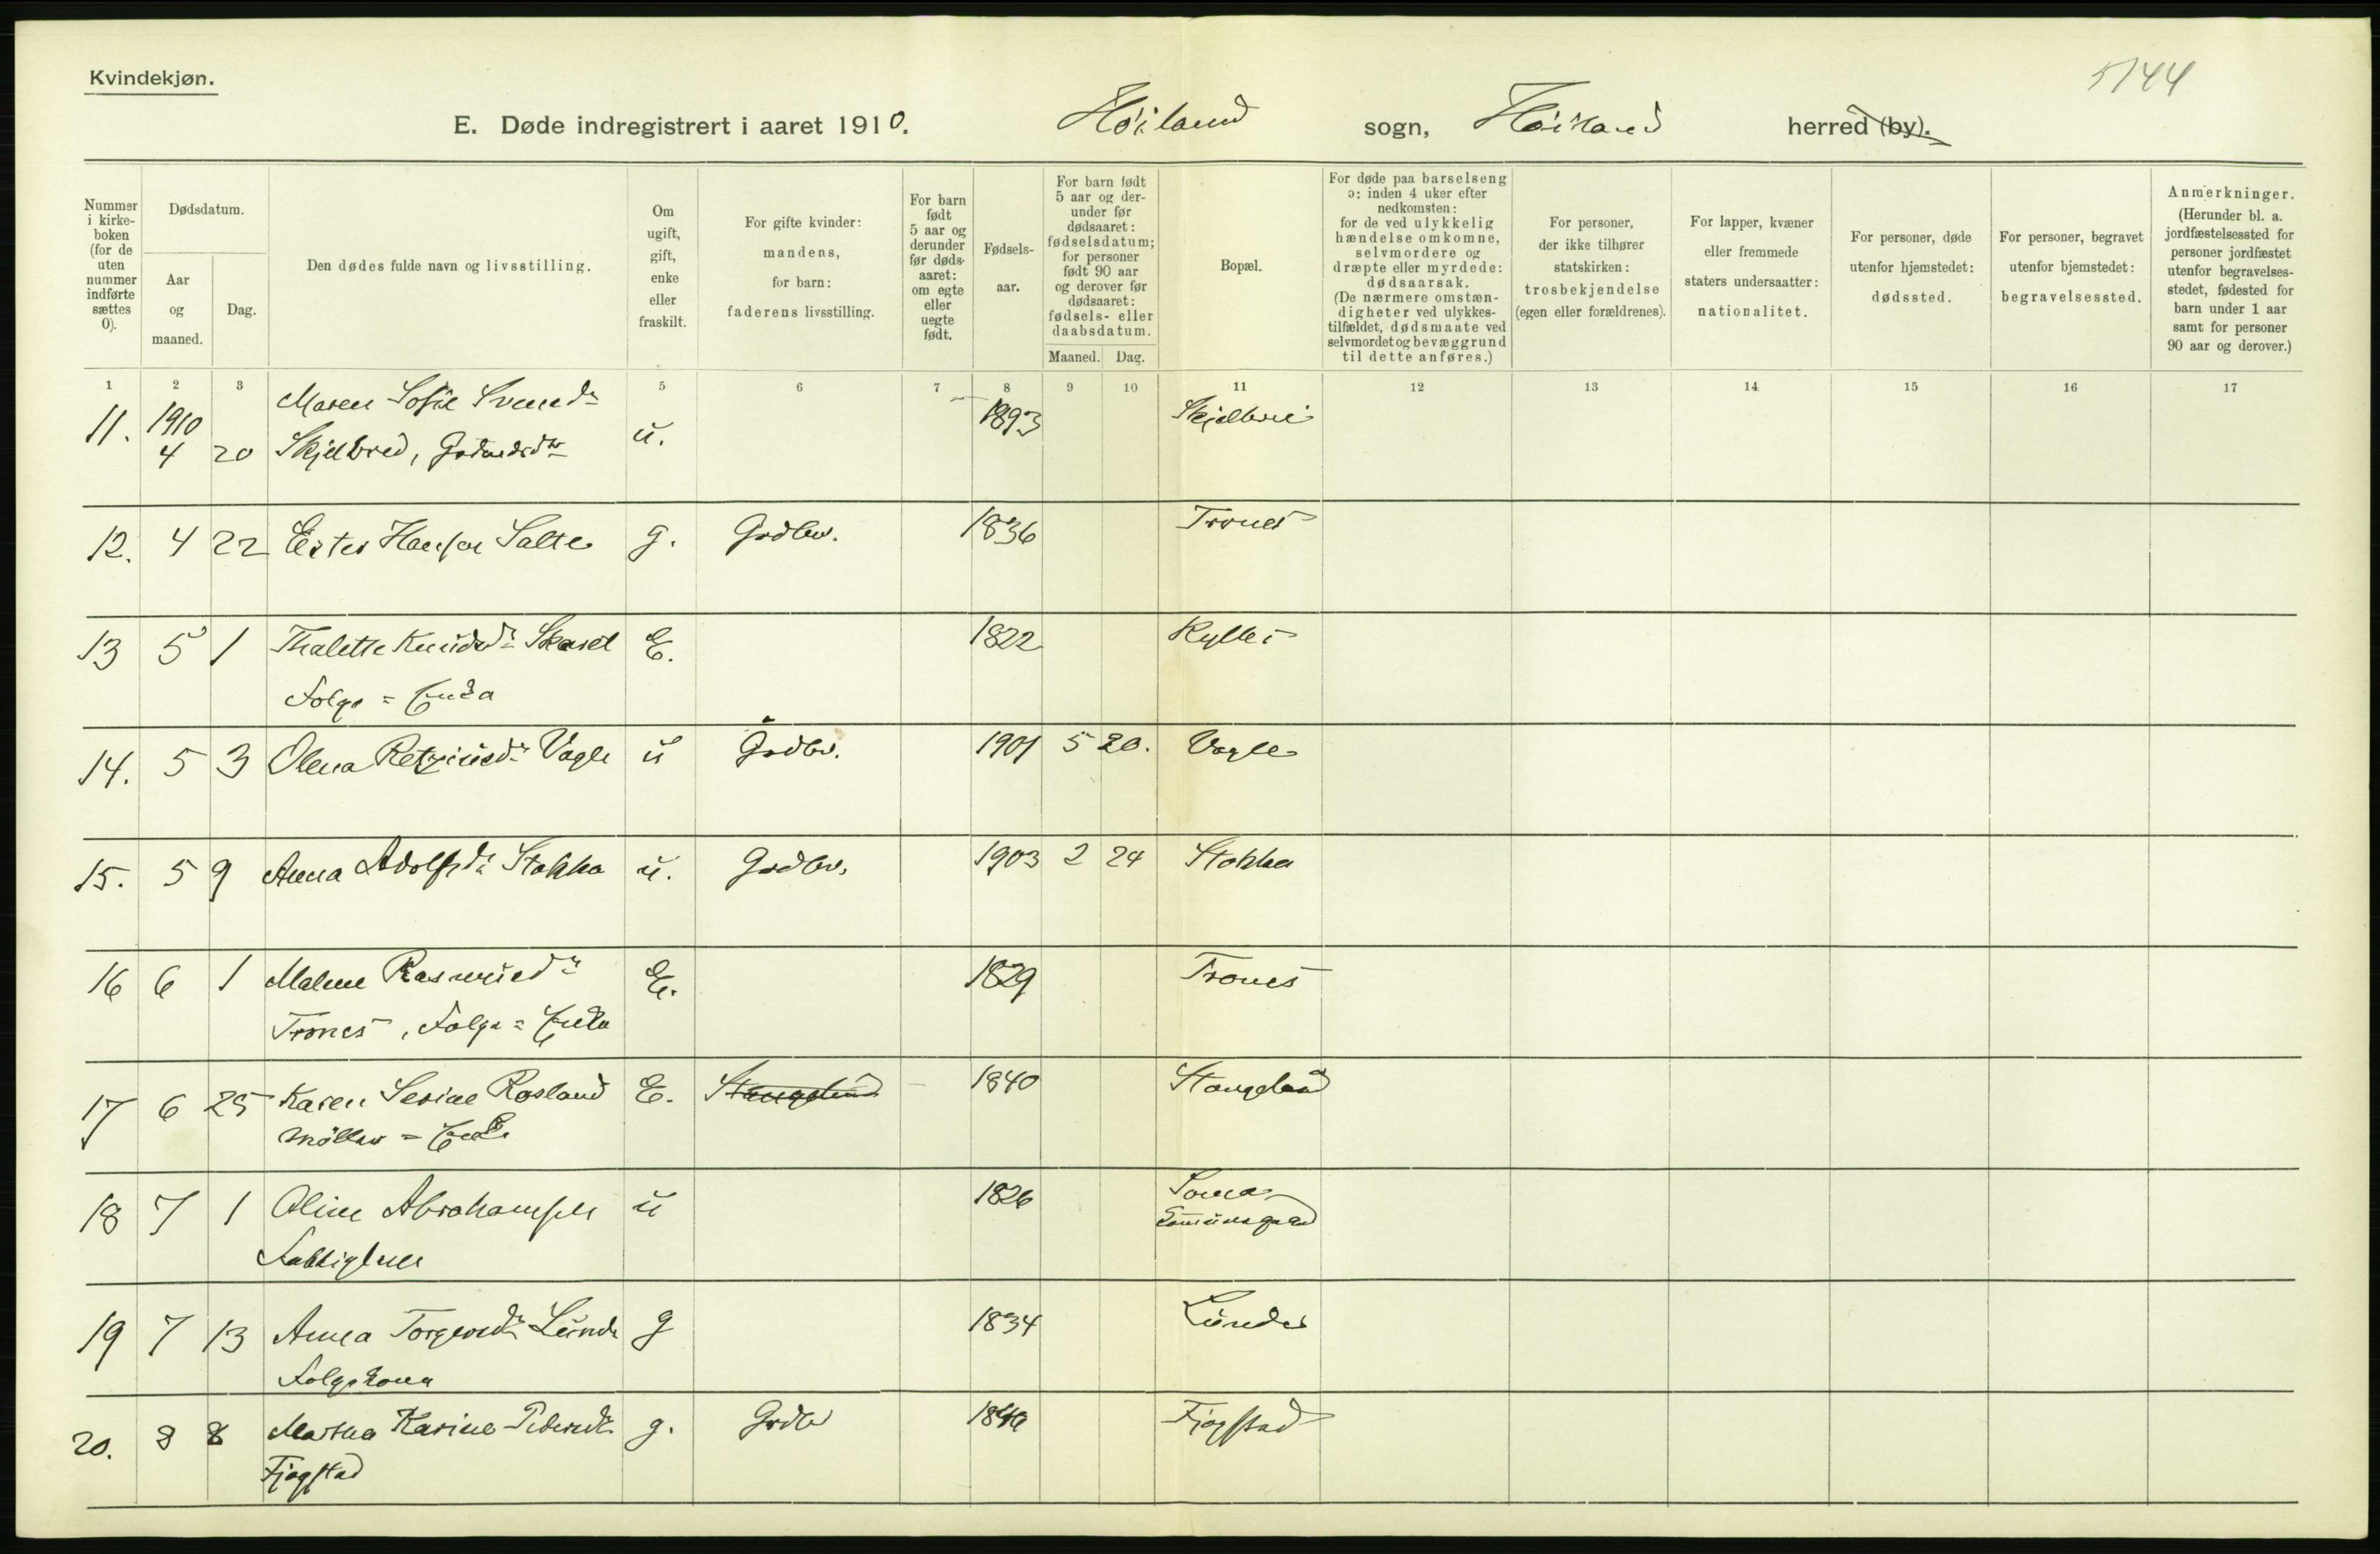 Kvindekjøn.
5144
E. Døde indregistrert i aaret 1910. Höiland sogn, Höiland herred (by).
Nummer i kirkeboken (for de uten nummer indførte sættes 0).
Dødsdatum.
Aar og maaned.
Dag.
Den dødes fulde navn og livsstilling.
Om ugift, gift, enke eller fraskilt.
For gifte kvinder: mandens, for barn: faderens livsstilling.
For barn født 5 aar og derunder før dødsaaret: om egte eller uegte født.
Fødselsaar.
For barn født 5 aar og derunder før dødsaaret: fødselsdatum; for personer født 90 aar og derover før dødsaaret: fødsels- eller daabsdatum.
Maaned. Dag.
Bopæl.
For døde paa barselseng ɔ: inden 4 uker efter nedkomsten: for de ved ulykkelig hændelse omkomne, selvmordere og dræpte eller myrdede: dødsaarsak. (De nærmere omstændigheter ved ulykkestilfældet, dødsmaate ved selvmordet og bevæggrund til dette anføres.)
For personer, der ikke tilhører statskirken: trosbekjendelse (egen eller forældrenes).
For lapper, kvæner eller fremmede staters undersaatter: nationalitet.
For personer, døde utenfor hjemstedet: dødssted.
For personer, begravet utenfor hjemstedet: begravelsessted.
Anmerkninger. (Herunder bl. a. jordfæstelsessted for personer jordfæstet utenfor begravelsesstedet, fødested for barn under 1 aar samt for personer 90 aar og derover.)
1 2 3 5 6 7 8 9 10 11 12 13 14 15 16 17
11. 1910 4 20 Maren Sofie Svendsdr Skjelbred, u. 1893 Skjelbrei
12. 4 22 Ester Hansen Salte g. Grdbr. 1836 Trones
13 5 1 Thalette Knudsdr Skasel E. 1822 Kylles
Folge = Enka
14. 5 3 Olena Retziusdr Vagle u Grdbr. 1901 5 20. Vagle
15. 5 9 Anna Adolfsdr Stokka u. Grdbr. 1903 2 24 Stokka
16 6 1 Malene Rasmusdr E. 1829 Trones
Trones, Folge = Enka
17 6 25 Karen Serine Rosland E. Stangeland 1840 Stangeland
Möller = Enke
18 7 1 Oline Abrahamsen u 1826 Soma
Fattiglem
19 7 13 Anna Torgersdr Lunde g 1834 Lunde
Folgekona
20. 8 8 Martha Karine Pedersdr g. Grdb Fjogstad
Fjogstad